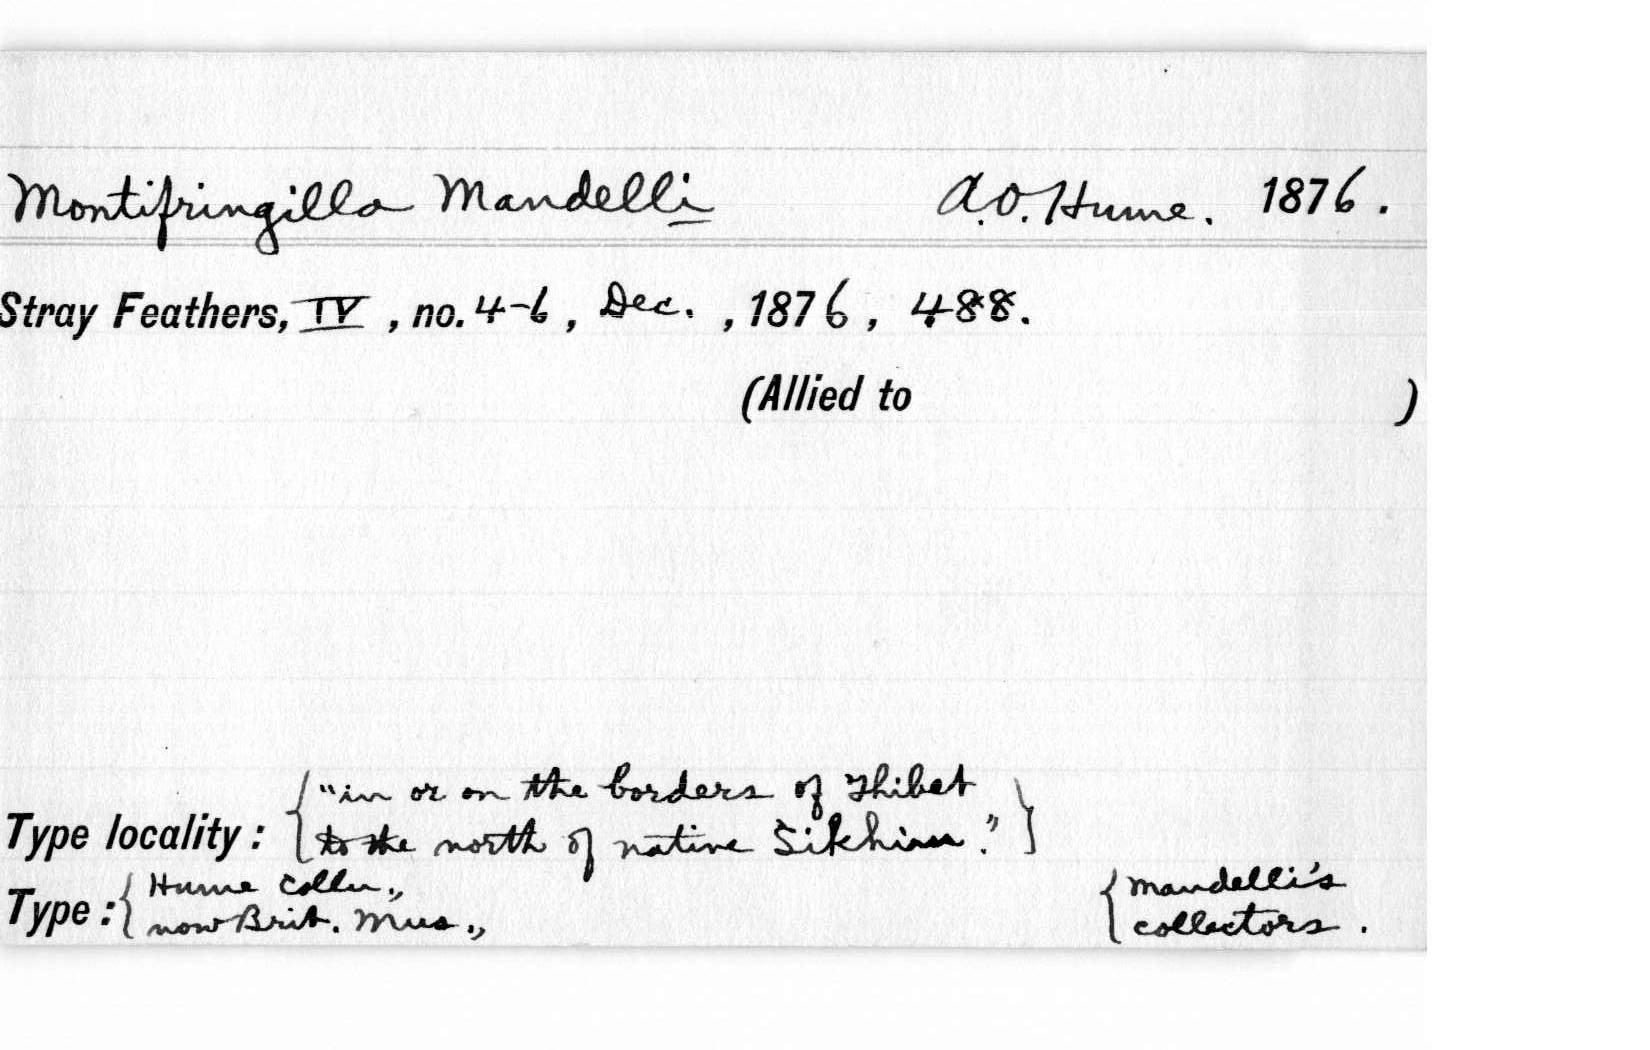 Montifringilla Mandelli A.O. Hume. 1876.
Stray Feathers, IV, no. 4-6, Dec., 1876, 488.
(Allied to )
"in or on the borders of Thibet
Type locality: to the north of native Sikhim."
Hume Colln., Mandelli's
Type: now Brit. Mus., collectors.